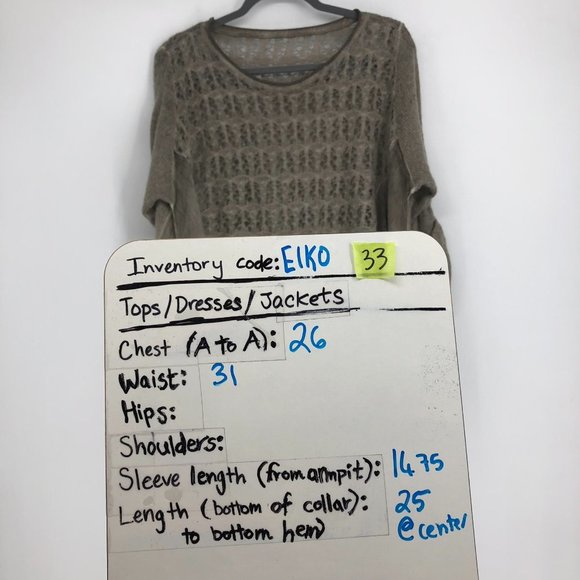 Inventory code: EIKO 33
Tops/Dresses/Jackets
Chest (A to A): 26
Waist: 31
Hips:
Shoulders:
Sleeve length (from armpit): 14.75
Length (bottom of collar): 25
to bottom hem) @center